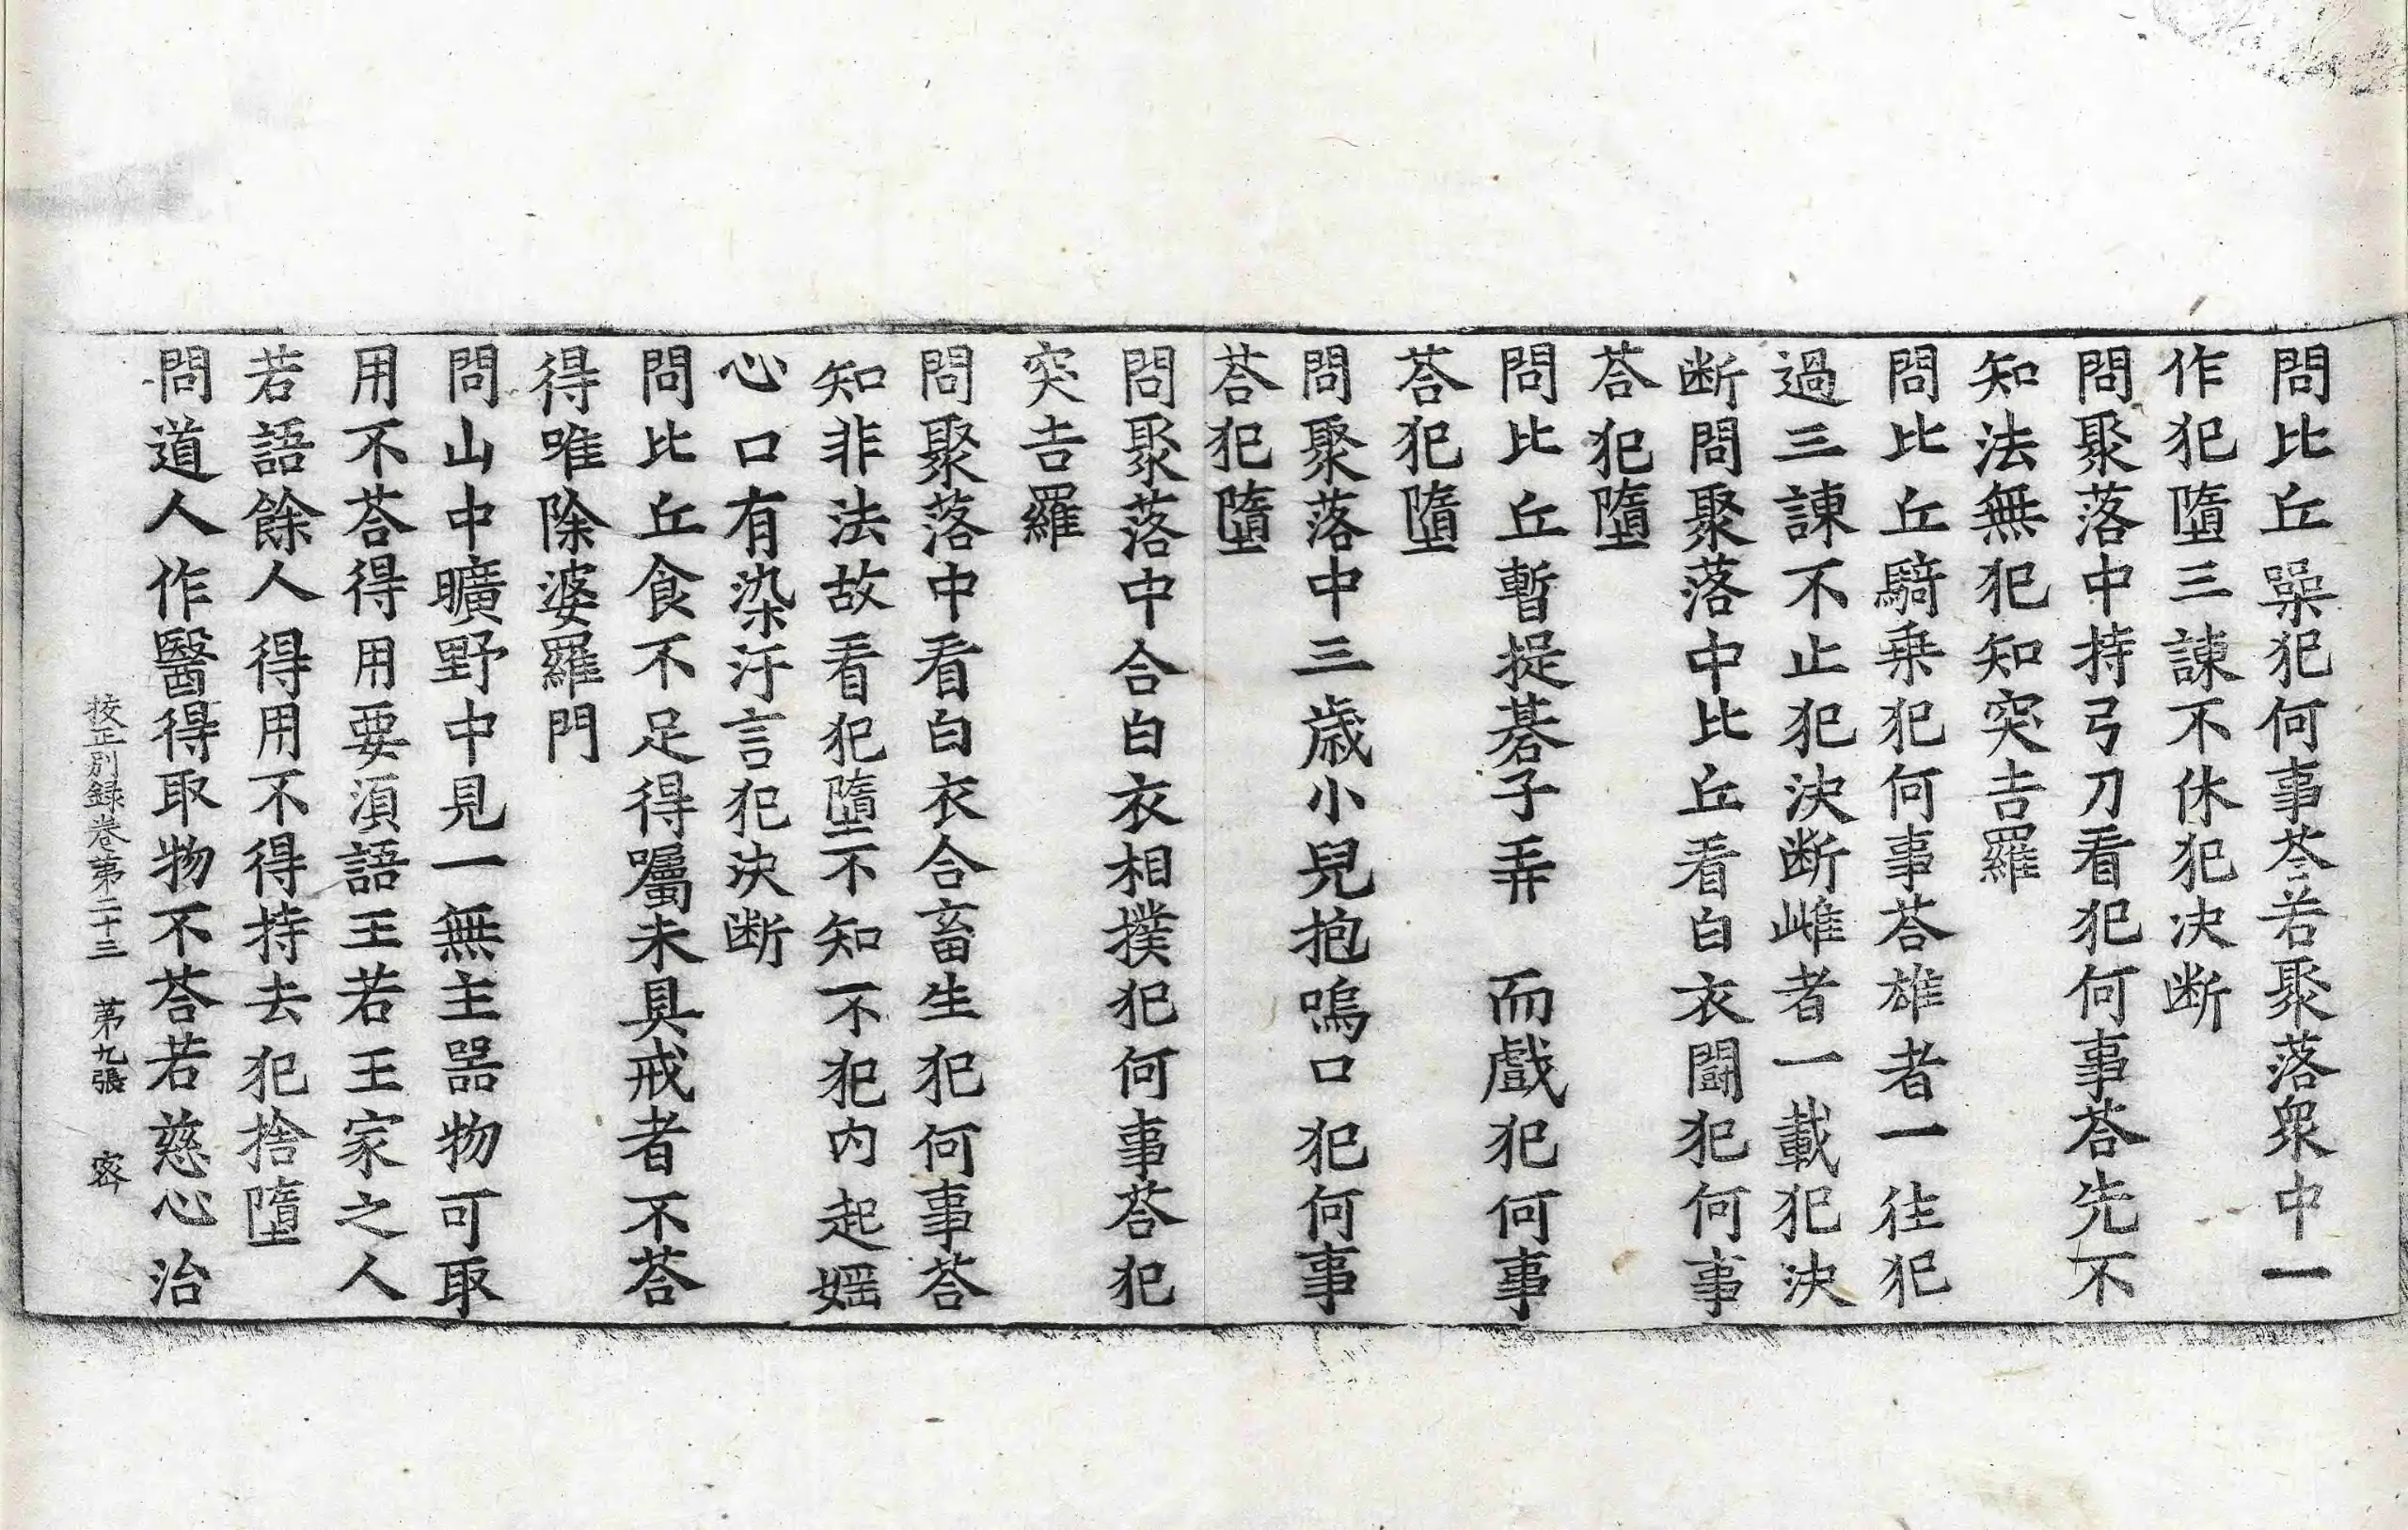 問比丘喿犯何事荅若聚落衆中一
作犯墮三諌不休犯決断
問聚落中持弓刀看犯何事荅先不
知法無犯知突吉羅
問比丘騎乗犯何事荅雄者一徃犯
過三諌不止犯決断雌者一載犯決
断問聚落中比丘看白衣闘犯何事
荅犯墮
問比丘暫捉碁子弄　而戲犯何事
荅犯墮
問聚落中三歳小兒抱嗚口犯何事
荅犯墮
問聚落中合白衣相撲犯何事荅犯
突吉羅
問聚落中看白衣合畜生犯何事荅
知非法故看犯墮不知不犯内起婬
心口有染汙言犯決断
問比丘食不足得囑未具戒者不荅
得唯除婆羅門
問山中曠野中見一無主噐物可取
用不荅得用要湏語王若王家之人
若語餘人得用不得持去犯捨墮
問道人作醫得取物不荅若慈心治
挍正别録巻苐二十三　苐九張　宻